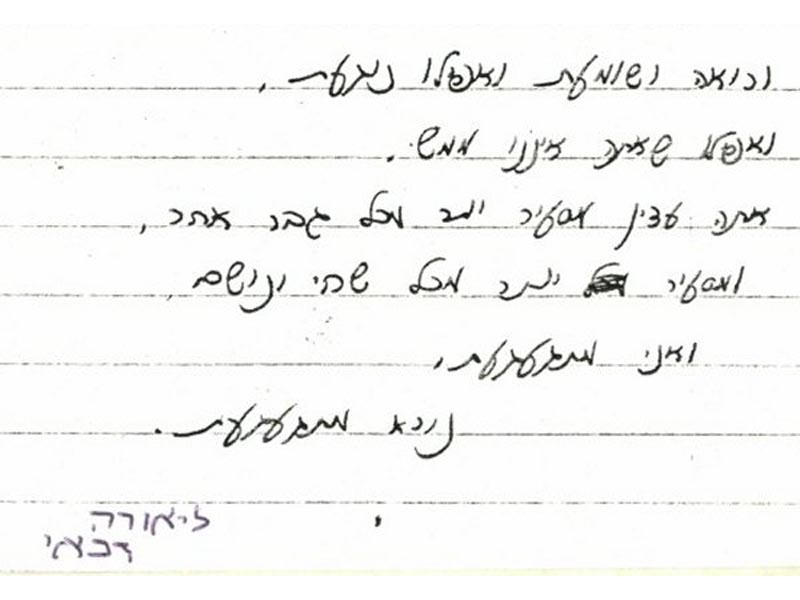 ורואה ושומעת ואפילו נוגעת,
ואפילו שאתה אינני ממש.
אתה עדין ומסעיר יותר מכל גבר אחר,
ומסעיר יותר מכל שחי ונושם
ואני מתגעגעת,
נורא מתגעגעת.
ליאורה
דבאי